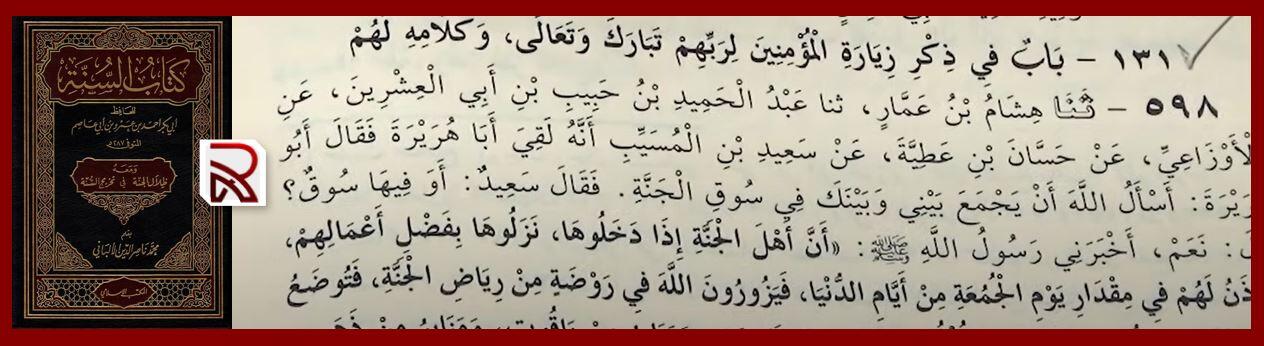 كتاب السنة
للحافظ
أبي بكر أحمد بن عمرو بن أبي عاصم
المتوفى ٢٨٧ھ
ومعه
ظلال الجنة في تخريج السنة
بقلم
محمد ناصر الدين الألباني
المكتب الإسلامي
R
١٣١ - بَابٌ فِي ذِكْرِ زِيَارَةِ الْمُؤْمِنِينَ لِرَبِّهِمْ تَبَارَكَ وَتَعَالَى، وَكَلَامِهِ لَهُمْ
٥٩٨ - ثَنَا هِشَامُ بْنُ عَمَّارٍ، ثنا عَبْدُ الْحَمِيدِ بْنُ حَبِيبِ بْنِ أَبِي الْعِشْرِينَ، عَنِ
لْأَوْزَاعِيِّ، عَنْ حَسَّانَ بْنِ عَطِيَّةَ، عَنْ سَعِيدِ بْنِ الْمُسَيِّبِ أَنَّهُ لَقِيَ أَبَا هُرَيْرَةَ فَقَالَ أَبُو
رَيْرَةَ: أَسْأَلُ اللَّهَ أَنْ يَجْمَعَ بَيْنِي وَبَيْنَكَ فِي سُوقِ الْجَنَّةِ. فَقَالَ سَعِيدٌ: أَوَ فِيهَا سُوقٌ؟
لَ: نَعَمْ، أَخْبَرَنِي رَسُولُ اللَّهِ ﷺ: «أَنَّ أَهْلَ الْجَنَّةِ إِذَا دَخَلُوهَا، نَزَلُوهَا بِفَضْلِ أَعْمَالِهِمْ،
ذَنُ لَهُمْ فِي مِقْدَارِ يَوْمِ الْجُمُعَةِ مِنْ أَيَّامِ الدُّنْيَا، فَيَزُورُونَ اللَّهَ فِي رَوْضَةٍ مِنْ رِيَاضِ الْجَنَّةِ، فَتُوضَعُ